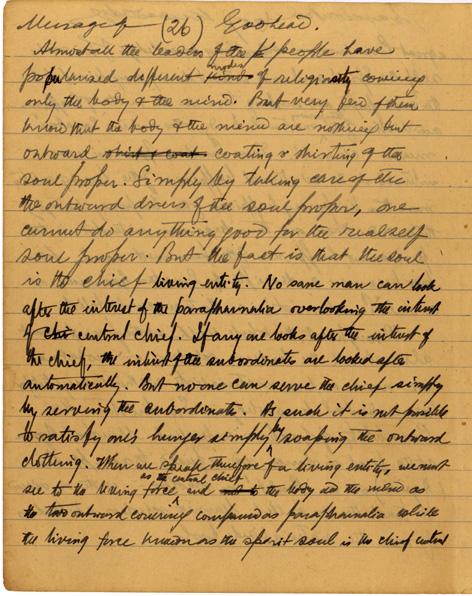 Message of (26) Godhead.
Almost all the leaders of the people have
popularised different modes of religiosity covering
only the body & the mind. But very few of them
know that the body & the mind are nothing but
outward shirt & coat coating & shirting of the
soul proper. Simply by taking care of the
the outward dress of the soul proper, one
cannot do anything good for the real self
soul proper. But the fact is that the soul
is the chief living entity. No sane man can look
after the interest of the parapharnalia overlooking the interest
of central chief. If any one looks after the interest of
the chief, the interest of the subordinates are looked after
automatically. But no one can serve the chief simply
by serving the subordinate. As such it is not possible
to satisfy one's hunger simply by soaping the outward
clothing. When we speak therefore of a living entity, we must
see to the living force as the central chief and the body and the mind as
the two outward covering compound as parapharnalia while
the living force known as the spirit soul is the chief central